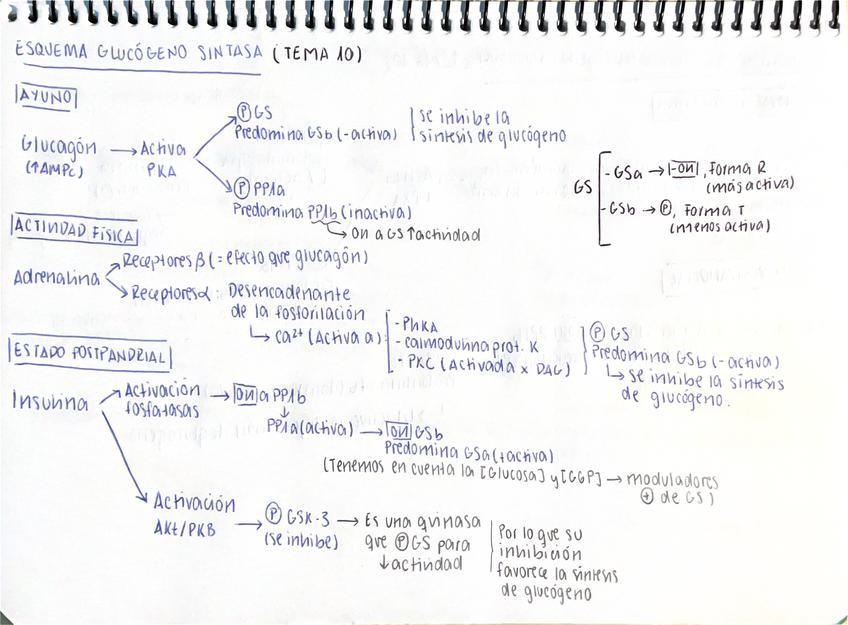 ESQUEMA GLUCÓGENO SINTASA (TEMA 10)
AYUNO
Glucagón → Activa
(↑AMPc) PKA
Ⓟ GS
Predomina GSb (-activa)
se inhibe la
síntesis de glucógeno
Ⓟ PP1a
Predomina PP1b (inactiva)
→ OH a GS ↑ actividad
GS
- GSa → -OH, forma R
(más activa)
- GSb → Ⓟ, forma T
(menos activa)
ACTIVIDAD FÍSICA
Adrenalina
Receptores β (= efecto que glucagón)
Receptores α: Desencadenante
de la fosforilación
→ Ca²⁺ (Activa a):
- PhKA
- calmodulina prot. K
- PKC (Activada x DAG)
Ⓟ GS
Predomina GSb (-activa)
→ se inhibe la síntesis
de glucógeno.
ESTADO POSTPANDRIAL
Insulina
Activación
fosfatasas
→ OH a PP1b
↓
PP1a (activa) → OH GSb
Predomina GSa (+activa)
(Tenemos en cuenta la [Glucosa] y [GGP] → moduladores
⊕ de GS)
Activación
AKt/PKB
→ Ⓟ GSK-3
(se inhibe)
→ Es una quinasa
que Ⓟ GS para
↓ actividad
Por lo que su
inhibición
favorece la síntesis
de glucógeno